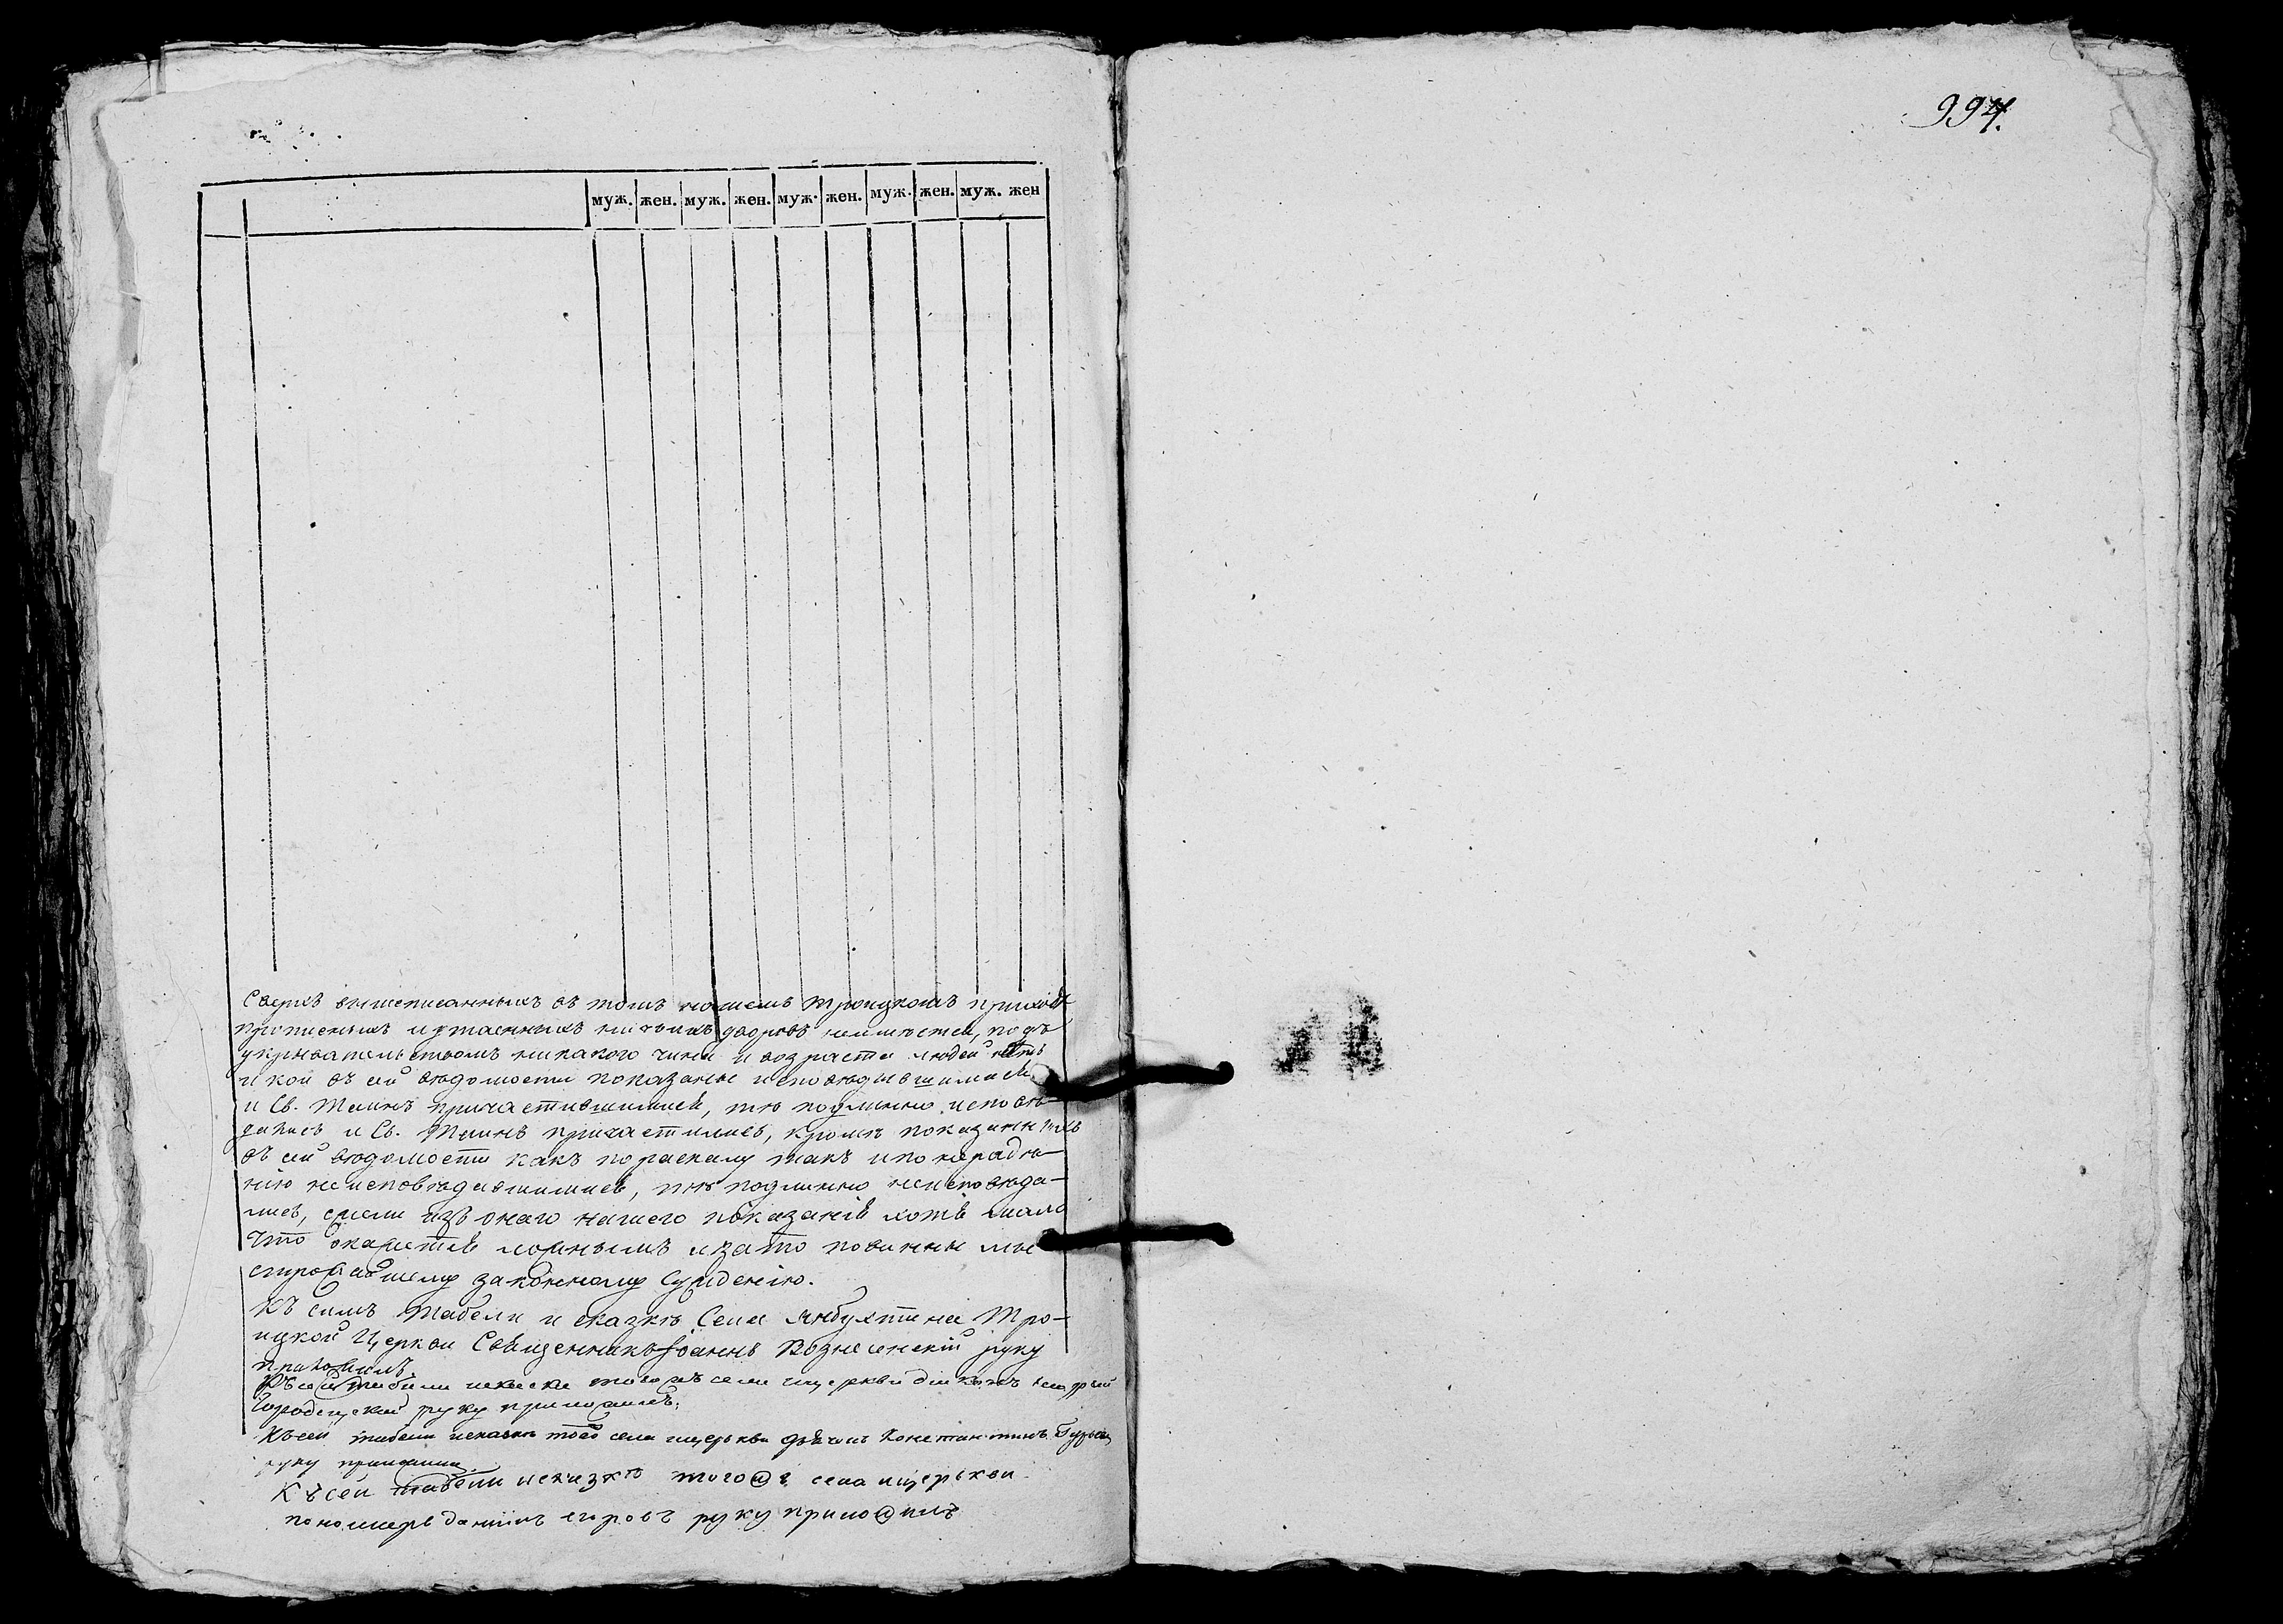 994.
муж. жен. муж. жен. муж. жен. муж. жен. муж. жен
Сверхъ вышеписанныхъ въ томъ нашемъ Троицкомъ приходѣ
прописныхъ и утаенныхъ ни чьихъ дворовъ неимѣется, подъ
укрывательствомъ никакого чина и возраста людей нѣтъ
и кои въ сей вѣдомости показаны исповѣдывшимися
и Св. Таинъ причастившимися, тѣ подлинно исповѣ-
дались и Св. Таинъ причастились, кромѣ показанныхъ
въ сей вѣдомости какъ по расколу такъ и по нерадѣ-
нію неисповѣдавшимися, тѣ подлинно неисповѣда-
лись, ежели изъ онаго нашего показанія хотя мало
что окажется ложнымъ и за то повинны мы
строжайшему законному сужденію.
Къ симъ табели и сказкѣ Села Янбухтина Тро-
ицкой Церкви Священникъ Іоаннъ Вознесенскій руку
приложилъ.
Къ сей табели и сказке того жъ села и церкви діаконъ
Городецкой руку приложилъ.
Къ сей табели и сказке того села и церкви дьячокъ Константинъ
руку приложилъ.
Къ сей табели и сказкѣ того ж села и церькви
пономерь Даниилъ егоровъ руку приложилъ